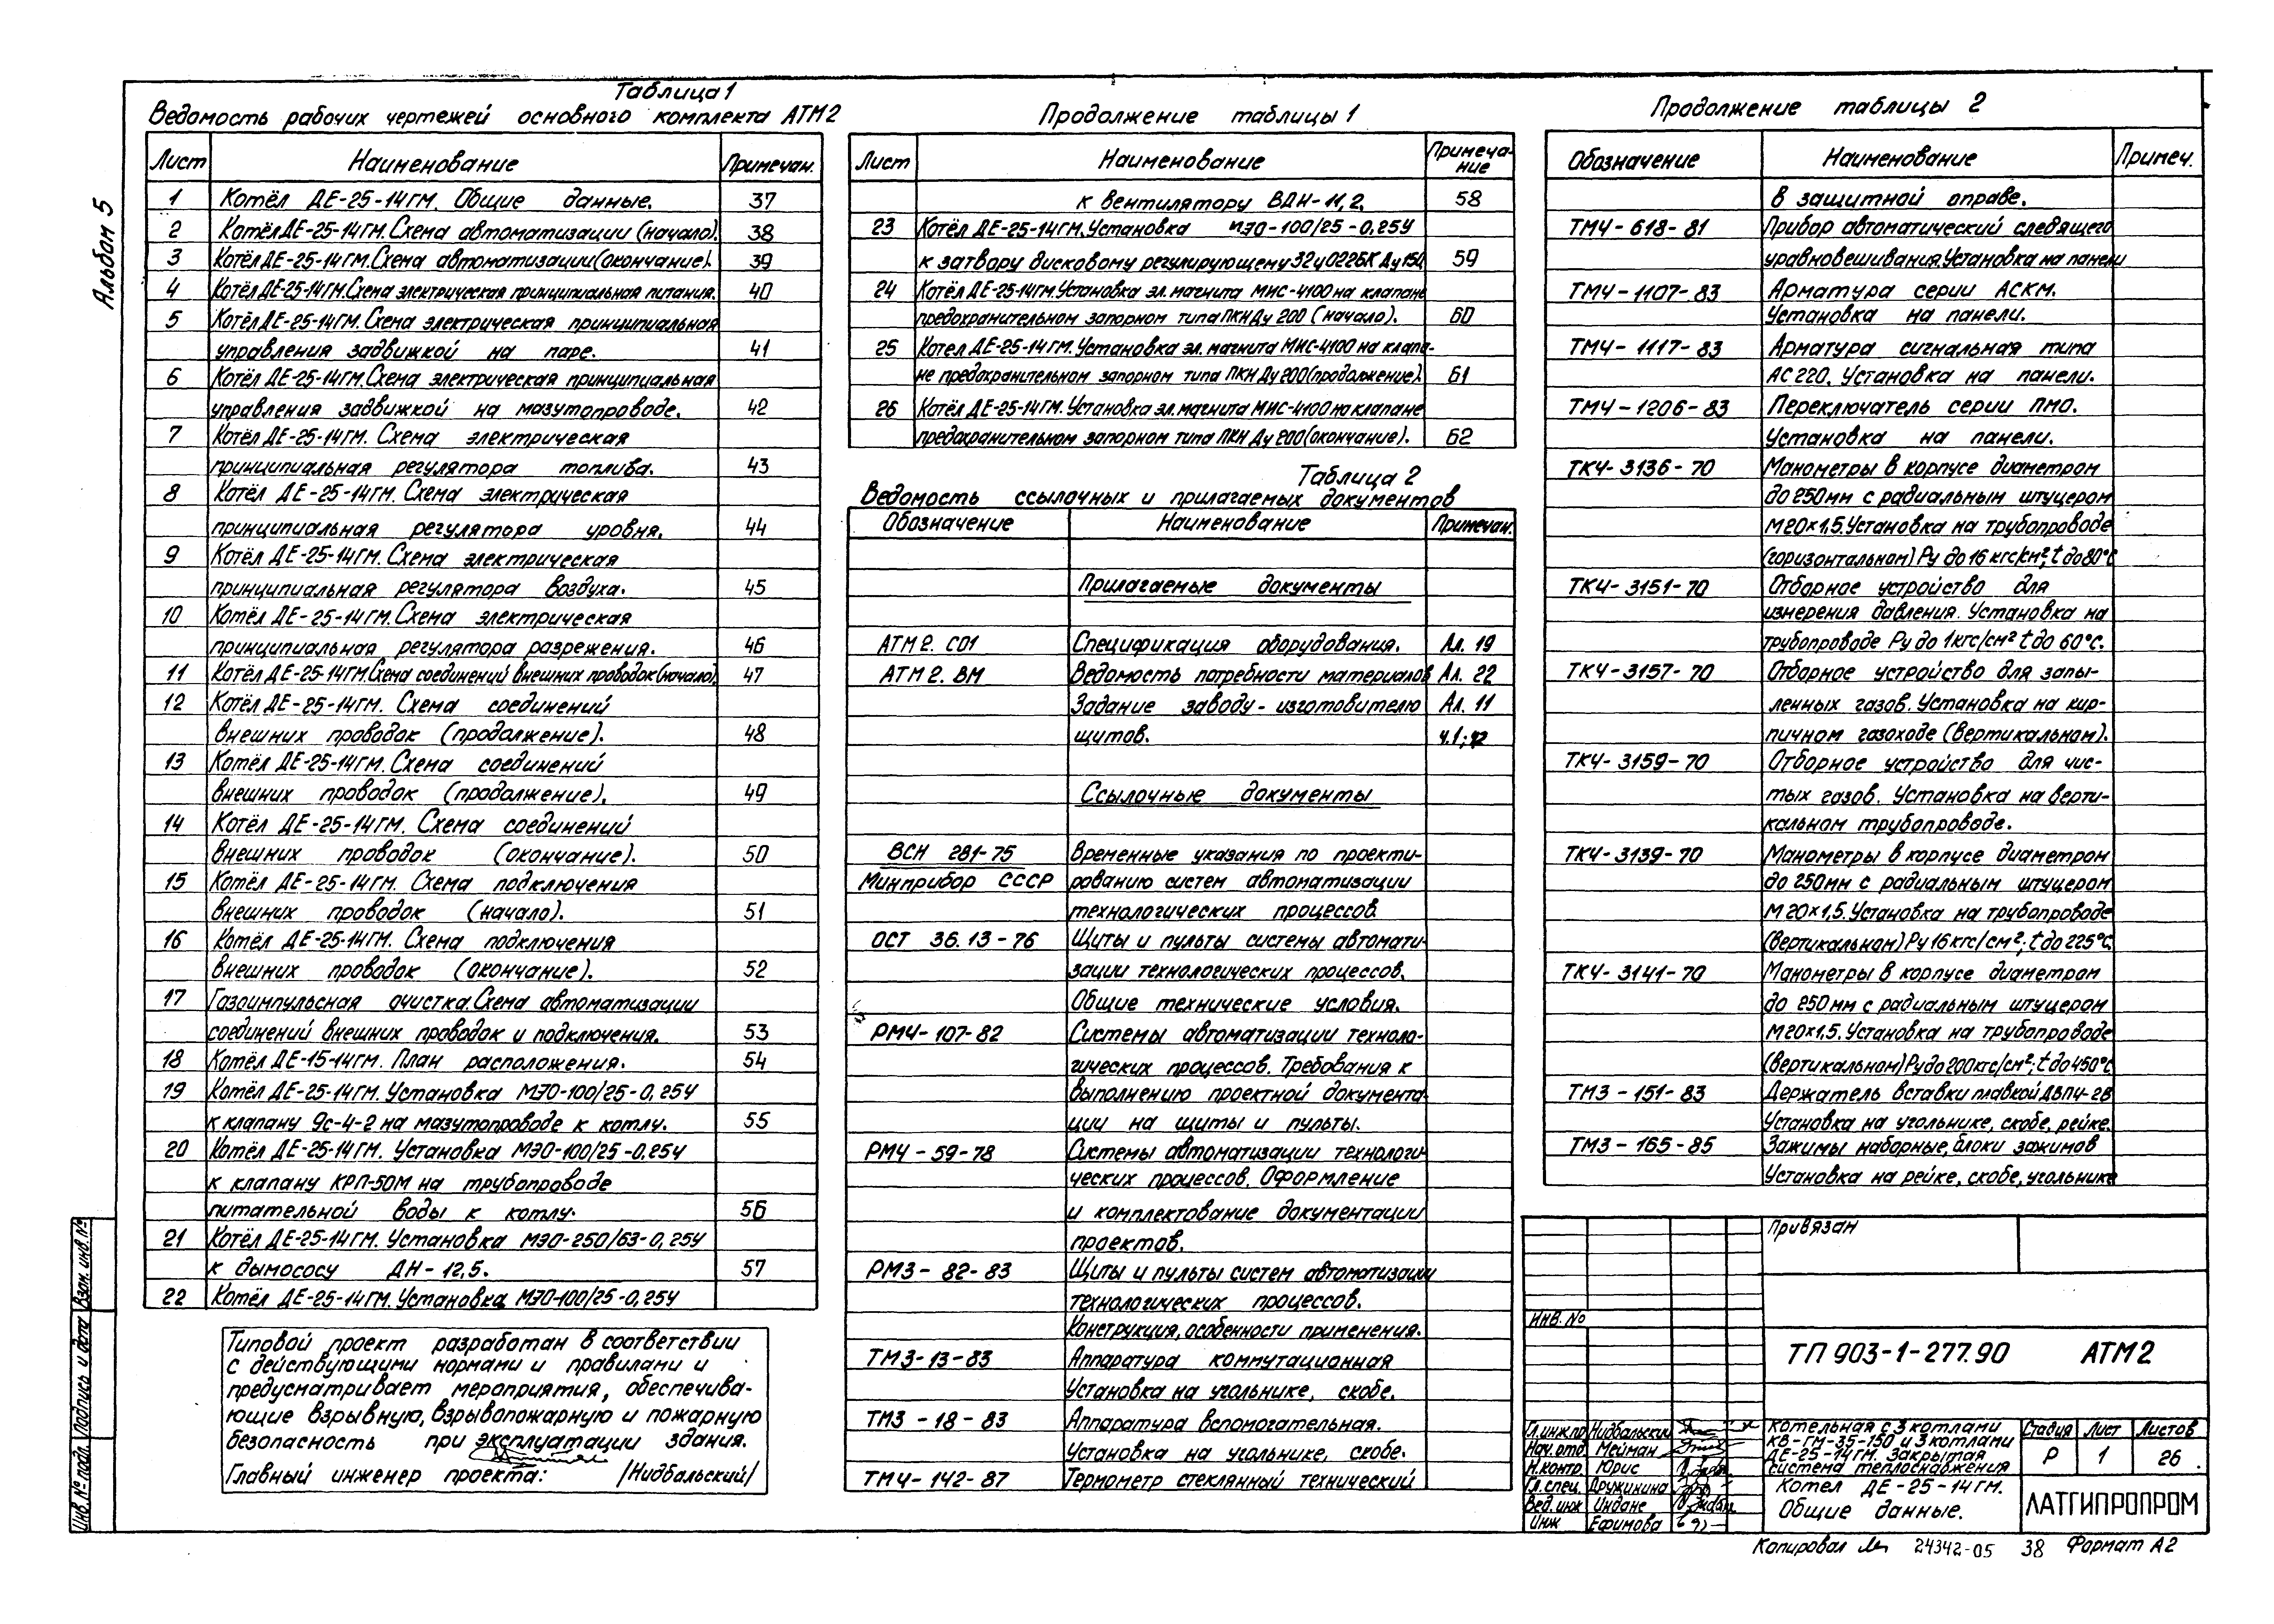 Альбом 5
Таблица 1
Ведомость рабочих чертежей основного комплекта АТМ2
Лист Наименование Примечан.
1 Котёл ДЕ-25-14ГМ. Общие данные. 37
2 Котёл ДЕ-25-14ГМ. Схема автоматизации (начало). 38
3 Котёл ДЕ-25-14ГМ. Схема автоматизации (окончание). 39
4 Котёл ДЕ-25-14ГМ. Схема электрическая принципиальная питания. 40
5 Котёл ДЕ-25-14ГМ. Схема электрическая принципиальная
управления задвижкой на паре. 41
6 Котёл ДЕ-25-14ГМ. Схема электрическая принципиальная
управления задвижкой на мазутопроводе. 42
7 Котёл ДЕ-25-14ГМ. Схема электрическая
принципиальная регулятора топлива. 43
8 Котёл ДЕ-25-14ГМ. Схема электрическая
принципиальная регулятора уровня. 44
9 Котёл ДЕ-25-14ГМ. Схема электрическая
принципиальная регулятора воздуха. 45
10 Котёл ДЕ-25-14ГМ. Схема электрическая
принципиальная регулятора разрежения. 46
11 Котёл ДЕ-25-14ГМ. Схема соединений внешних проводок (начало). 47
12 Котёл ДЕ-25-14ГМ. Схема соединений
внешних проводок (продолжение). 48
13 Котёл ДЕ-25-14ГМ. Схема соединений
внешних проводок (продолжение). 49
14 Котёл ДЕ-25-14ГМ. Схема соединений
внешних проводок (окончание). 50
15 Котёл ДЕ-25-14ГМ. Схема подключения
внешних проводок (начало). 51
16 Котёл ДЕ-25-14ГМ. Схема подключения
внешних проводок (окончание). 52
17 Газоимпульсная очистка. Схема автоматизации
соединений внешних проводок и подключения. 53
18 Котёл ДЕ-15-14ГМ. План расположения. 54
19 Котёл ДЕ-25-14ГМ. Установка МЭО-100/25-0,25У
к клапану 9с-4-2 на мазутопроводе к котлу. 55
20 Котёл ДЕ-25-14ГМ. Установка МЭО-100/25-0,25У
к клапану КРП-50М на трубопроводе
питательной воды к котлу. 56
21 Котёл ДЕ-25-14ГМ. Установка МЭО-250/63-0,25У
к дымососу ДН-12,5. 57
22 Котёл ДЕ-25-14ГМ. Установка МЭО-100/25-0,25У
Типовой проект разработан в соответствии
с действующими нормами и правилами и
предусматривает мероприятия, обеспечива-
ющие взрывную, взрывопожарную и пожарную
безопасность при эксплуатации здания.
Главный инженер проекта: /Нидбальский/
Продолжение таблицы 1
Лист Наименование Примеча-
ние
к вентилятору ВДН-11,2. 58
23 Котёл ДЕ-25-14ГМ. Установка МЭО-100/25-0,25У
к затвору дисковому регулирующему 32ч022БК Ду 150 59
24 Котёл ДЕ-25-14ГМ. Установка эл. магнита МИС-4100 на клапане
предохранительном запорном типа ПКН Ду 200 (начало). 60
25 Котел ДЕ-25-14ГМ. Установка эл. магнита МИС-4100 на клапа-
не предохранительном запорном типа ПКН Ду 200 (продолжение). 61
26 Котёл ДЕ-25-14ГМ. Установка эл. магнита МИС-4100 на клапане
предохранительном запорном типа ПКН Ду 200 (окончание). 62
Таблица 2
Ведомость ссылочных и прилагаемых документов
Обозначение Наименование Примечан.
Прилагаемые документы
АТМ2. СО1 Спецификация оборудования. Ал. 19
АТМ2. ВМ Ведомость потребности материалов Ал. 22
Задание заводу-изготовителю Ал. 11
щитов. ч.1;
Ссылочные документы
ВСН 281-75 Временные указания по проекти-
Минприбор СССР рованию систем автоматизации
технологических процессов
ОСТ 36.13-76 Щиты и пульты системы автомати-
зации технологических процессов.
Общие технические условия.
РМ4-107-82 Системы автоматизации техноло-
гических процессов. Требования к
выполнению проектной документа-
ции на щиты и пульты.
РМ4-59-78 Системы автоматизации технологи-
ческих процессов. Оформление
и комплектование документации
проектов.
РМ3-82-83 Щиты и пульты систем автоматизации
технологических процессов.
Конструкция, особенности применения.
ТМ3-13-83 Аппаратура коммутационная
Установка на угольнике, скобе.
ТМ3-18-83 Аппаратура вспомогательная.
Установка на угольнике, скобе.
ТМ4-142-87 Термометр стеклянный технический
Продолжение таблицы 2
Обозначение Наименование Примеч.
в защитной оправе.
ТМ4-618-81 Прибор автоматический следящего
уравновешивания. Установка на панели
ТМ4-1107-83 Арматура серии АСКМ.
Установка на панели.
ТМ4-1117-83 Арматура сигнальная типа
АС220. Установка на панели.
ТМ4-1206-83 Переключатель серии ПМО.
Установка на панели.
ТК4-3136-70 Манометры в корпусе диаметром
до 250мм с радиальным штуцером
М20×1,5. Установка на трубопроводе
(горизонтальном) Ру до 16 кгс/см²; t до 80°С
ТК4-3151-70 Отборное устройство для
измерения давления. Установка на
трубопроводе Ру до 1кгс/см² t до 60°С.
ТК4-3157-70 Отборное устройство для запы-
ленных газов. Установка на кир-
пичном газоходе (вертикальном).
ТК4-3159-70 Отборное устройство для чис-
тых газов. Установка на верти-
кальном трубопроводе.
ТК4-3139-70 Манометры в корпусе диаметром
до 250мм с радиальным штуцером
М20×1,5. Установка на трубопроводе
(вертикальном) Ру 16 кгс/см²; t до 225°С
ТК4-3141-70 Манометры в корпусе диаметром
до 250мм с радиальным штуцером
М20×1,5. Установка на трубопроводе
(вертикальном) Ру до 200 кгс/см²; t до 450°С
ТМ3-151-83 Держатель вставки плавкой ДВП4-2В
Установка на угольнике, скобе, рейке.
ТМ3-165-85 Зажимы наборные, блоки зажимов
Установка на рейке, скобе, угольнике
Привязан
Инв. №
ТП 903-1-277.90 АТМ2
Гл.инж.пр Нидбальский
Нач.отд Мейман
Н.контр. Юрис
Гл.спец. Дружинина
Вед.инж Индане
Инж Ефимова
Котельная с 3 котлами
КВ-ГМ-35-150 и 3 котлами
ДЕ-25-14ГМ. Закрытая
система теплоснабжения
Стадия Лист Листов
Р 1 26
Котел ДЕ-25-14ГМ.
Общие данные.
ЛАТГИПРОПРОМ
Копировал 24342-05 38 Формат А2
Инв. № подл. Подпись и дата Взам. инв. №